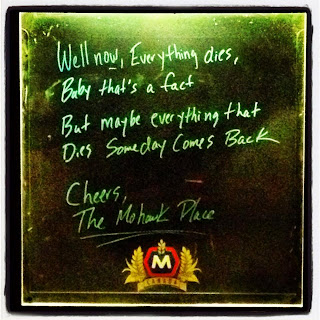 Well now, Everything dies,
Baby that's a fact
But maybe everything that
Dies Someday Comes Back
Cheers,
The Mohawk Place
M
CANADA